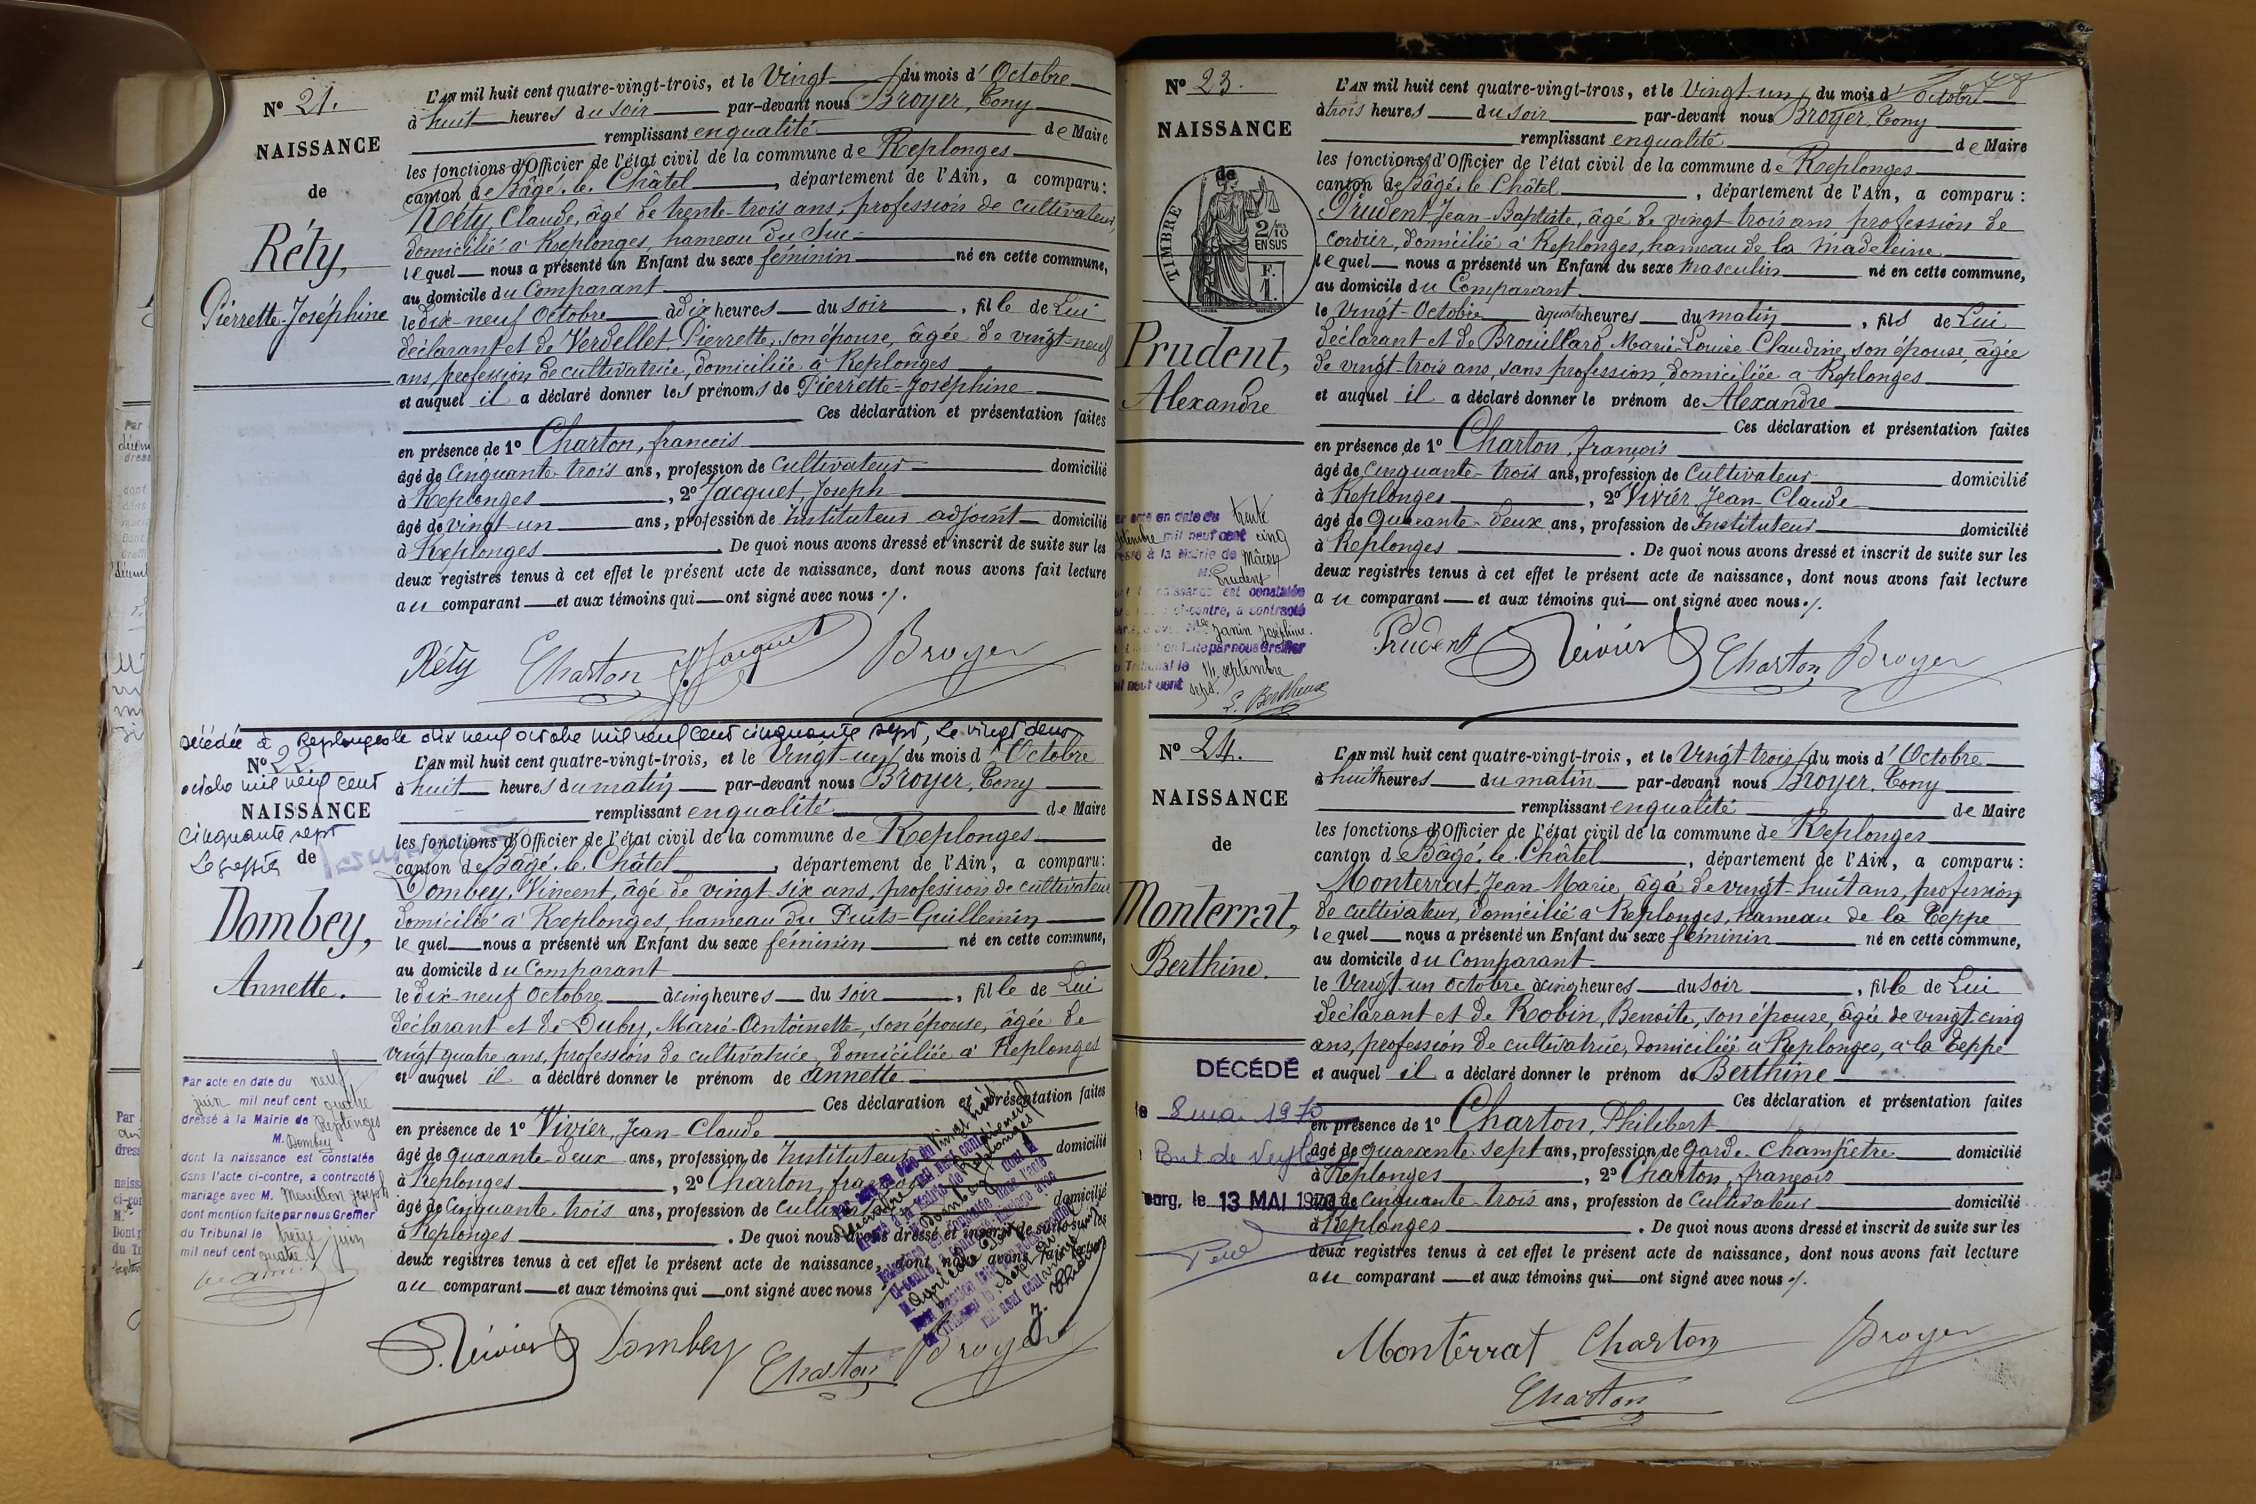 N° 21.
NAISSANCE
de
Réty,
Pierrette-Joséphine
L'AN mil huit cent quatre-vingt-trois, et le Vingt du mois d'Octobre
à huit heures du soir par-devant nous Broyer, Tony
remplissant en qualité de Maire
les fonctions d'Officier de l'état civil de la commune de Replonges
canton de Bâgé-le-Châtel, département de l'Ain, a comparu:
Réty, Claude, âgé de trente-trois ans, profession de cultivateur,
domicilié à Replonges, hameau du Suc
lequel nous a présenté un Enfant du sexe féminin né en cette commune,
au domicile du Comparant
le dix-neuf Octobre à dix heures du soir, fille de Lui
déclarant et de Verdellet Pierrette, son épouse, âgée de vingt-neuf
ans, profession de cultivatrice, domiciliée à Replonges
et auquel il a déclaré donner les prénoms de Pierrette-Joséphine
Ces déclaration et présentation faites
en présence de 1° Charton, francois
âgé de Cinquante-trois ans, profession de Cultivateur domicilié
à Replonges, 2° Jacquet, Joseph
âgé de vingt-un ans, profession de Instituteur adjoint domicilié
à Replonges. De quoi nous avons dressé et inscrit de suite sur les
deux registres tenus à cet effet le présent acte de naissance, dont nous avons fait lecture
au comparant et aux témoins qui ont signé avec nous ./.
Réty Charton J. Jacquet Broyer
décédée à Replonges le dix neuf octobre mil neuf cent cinquante sept, le vingt deux
octobre mil neuf cent
cinquante sept
Le greffier
N° 22
NAISSANCE
de
Dombey,
Annette.
L'AN mil huit cent quatre-vingt-trois, et le Vingt-un du mois d'Octobre
à huit heures du matin par-devant nous Broyer, Tony
remplissant en qualité de Maire
les fonctions d'Officier de l'état civil de la commune de Replonges
canton de Bâgé-le-Châtel, département de l'Ain, a comparu:
Dombey, Vincent, âgé de vingt-six ans, profession de cultivateur
domicilié à Replonges, hameau du Puits-Guillemin
lequel nous a présenté un Enfant du sexe féminin né en cette commune,
au domicile du Comparant
le dix-neuf Octobre à cinq heures du soir, fille de Lui
déclarant et de Duby, Marie-Antoinette, son épouse, âgée de
vingt quatre ans, profession de cultivatrice, domiciliée à Replonges
et auquel il a déclaré donner le prénom de Annette
Ces déclaration et présentation faites
en présence de 1° Vivier, Jean-Claude
âgé de quarante-deux ans, profession de Instituteur domicilié
à Replonges, 2° Charton, françois
âgé de Cinquante-trois ans, profession de Cultivateur domicilié
à Replonges. De quoi nous avons dressé et inscrit de suite sur les
deux registres tenus à cet effet le présent acte de naissance, dont nous avons fait lecture
au comparant et aux témoins qui ont signé avec nous
Par acte en date du neuf
juin mil neuf cent quatre
dressé à la Mairie de Replonges
M. Dombey
dont la naissance est constatée
dans l'acte ci-contre, a contracté
mariage avec M. Mouillon Joseph
dont mention faite par nous Greffier
du Tribunal le treize juin
mil neuf cent quatre
J. Vivier Dombey Charton Broyer
N° 23.
NAISSANCE
de
TIMBRE
2/10
EN SUS
F.
1.
Prudent,
Alexandre
L'AN mil huit cent quatre-vingt-trois, et le Vingt un du mois d'Octobre
à trois heures du soir par-devant nous Broyer, Tony
remplissant en qualité de Maire
les fonctions d'Officier de l'état civil de la commune de Replonges
canton de Bâgé-le-Châtel, département de l'Ain, a comparu:
Prudent Jean-Baptiste, âgé de vingt-trois ans profession de
cordier, domicilié à Replonges, hameau de la Madeleine
lequel nous a présenté un Enfant du sexe Masculin né en cette commune,
au domicile du Comparant
le Vingt-Octobre à quatre heures du matin, fils de Lui
déclarant et de Brouillard Marie-Louise Claudine, son épouse âgée
de vingt-trois ans, sans profession, domiciliée à Replonges
et auquel il a déclaré donner le prénom de Alexandre
Ces déclaration et présentation faites
en présence de 1° Charton, françois
âgé de Cinquante-trois ans, profession de Cultivateur domicilié
à Replonges, 2° Vivier Jean-Claude
âgé de Quarante-deux ans, profession de Instituteur domicilié
à Replonges. De quoi nous avons dressé et inscrit de suite sur les
deux registres tenus à cet effet le présent acte de naissance, dont nous avons fait lecture
au comparant et aux témoins qui ont signé avec nous ./.
acte en date du trente
mil neuf cent cinq
à la Mairie de Mâcon
M. Prudent
naissance est constatée
ci-contre, a contracté
Janin Joséphine
par nous Greffier
Tribunal le 14 septembre
mil neuf cent sept.
Prudent Vivier Charton Broyer
N° 24.
NAISSANCE
de
Monterrat,
Berthine.
L'AN mil huit cent quatre-vingt-trois, et le Vingt-trois du mois d'Octobre
à huit heures du matin par-devant nous Broyer, Tony
remplissant en qualité de Maire
les fonctions d'Officier de l'état civil de la commune de Replonges
canton de Bâgé-le-Châtel, département de l'Ain, a comparu:
Monterrat, Jean-Marie, âgé de vingt-huit ans, profession
de cultivateur, domicilié à Replonges, hameau de la Teppe
lequel nous a présenté un Enfant du sexe féminin né en cette commune,
au domicile du Comparant
le Vingt-un octobre à cinq heures du soir, fille de Lui
déclarant et de Robin, Benoîte, son épouse, âgée de vingt-cinq
ans, profession de cultivatrice, domiciliée à Replonges, à la Teppe
et auquel il a déclaré donner le prénom de Berthine
Ces déclaration et présentation faites
en présence de 1° Charton, Philibert
âgé de quarante sept ans, profession de Garde-Champêtre domicilié
à Replonges, 2° Charton, françois
âgé de Cinquante-trois ans, profession de Cultivateur domicilié
à Replonges. De quoi nous avons dressé et inscrit de suite sur les
deux registres tenus à cet effet le présent acte de naissance, dont nous avons fait lecture
au comparant et aux témoins qui ont signé avec nous ./.
DÉCÉDÉ
le 8 mai 1970
Pont de Veyle
ourg, le 13 MAI 1970
Monterrat Charton Broyer
Charton